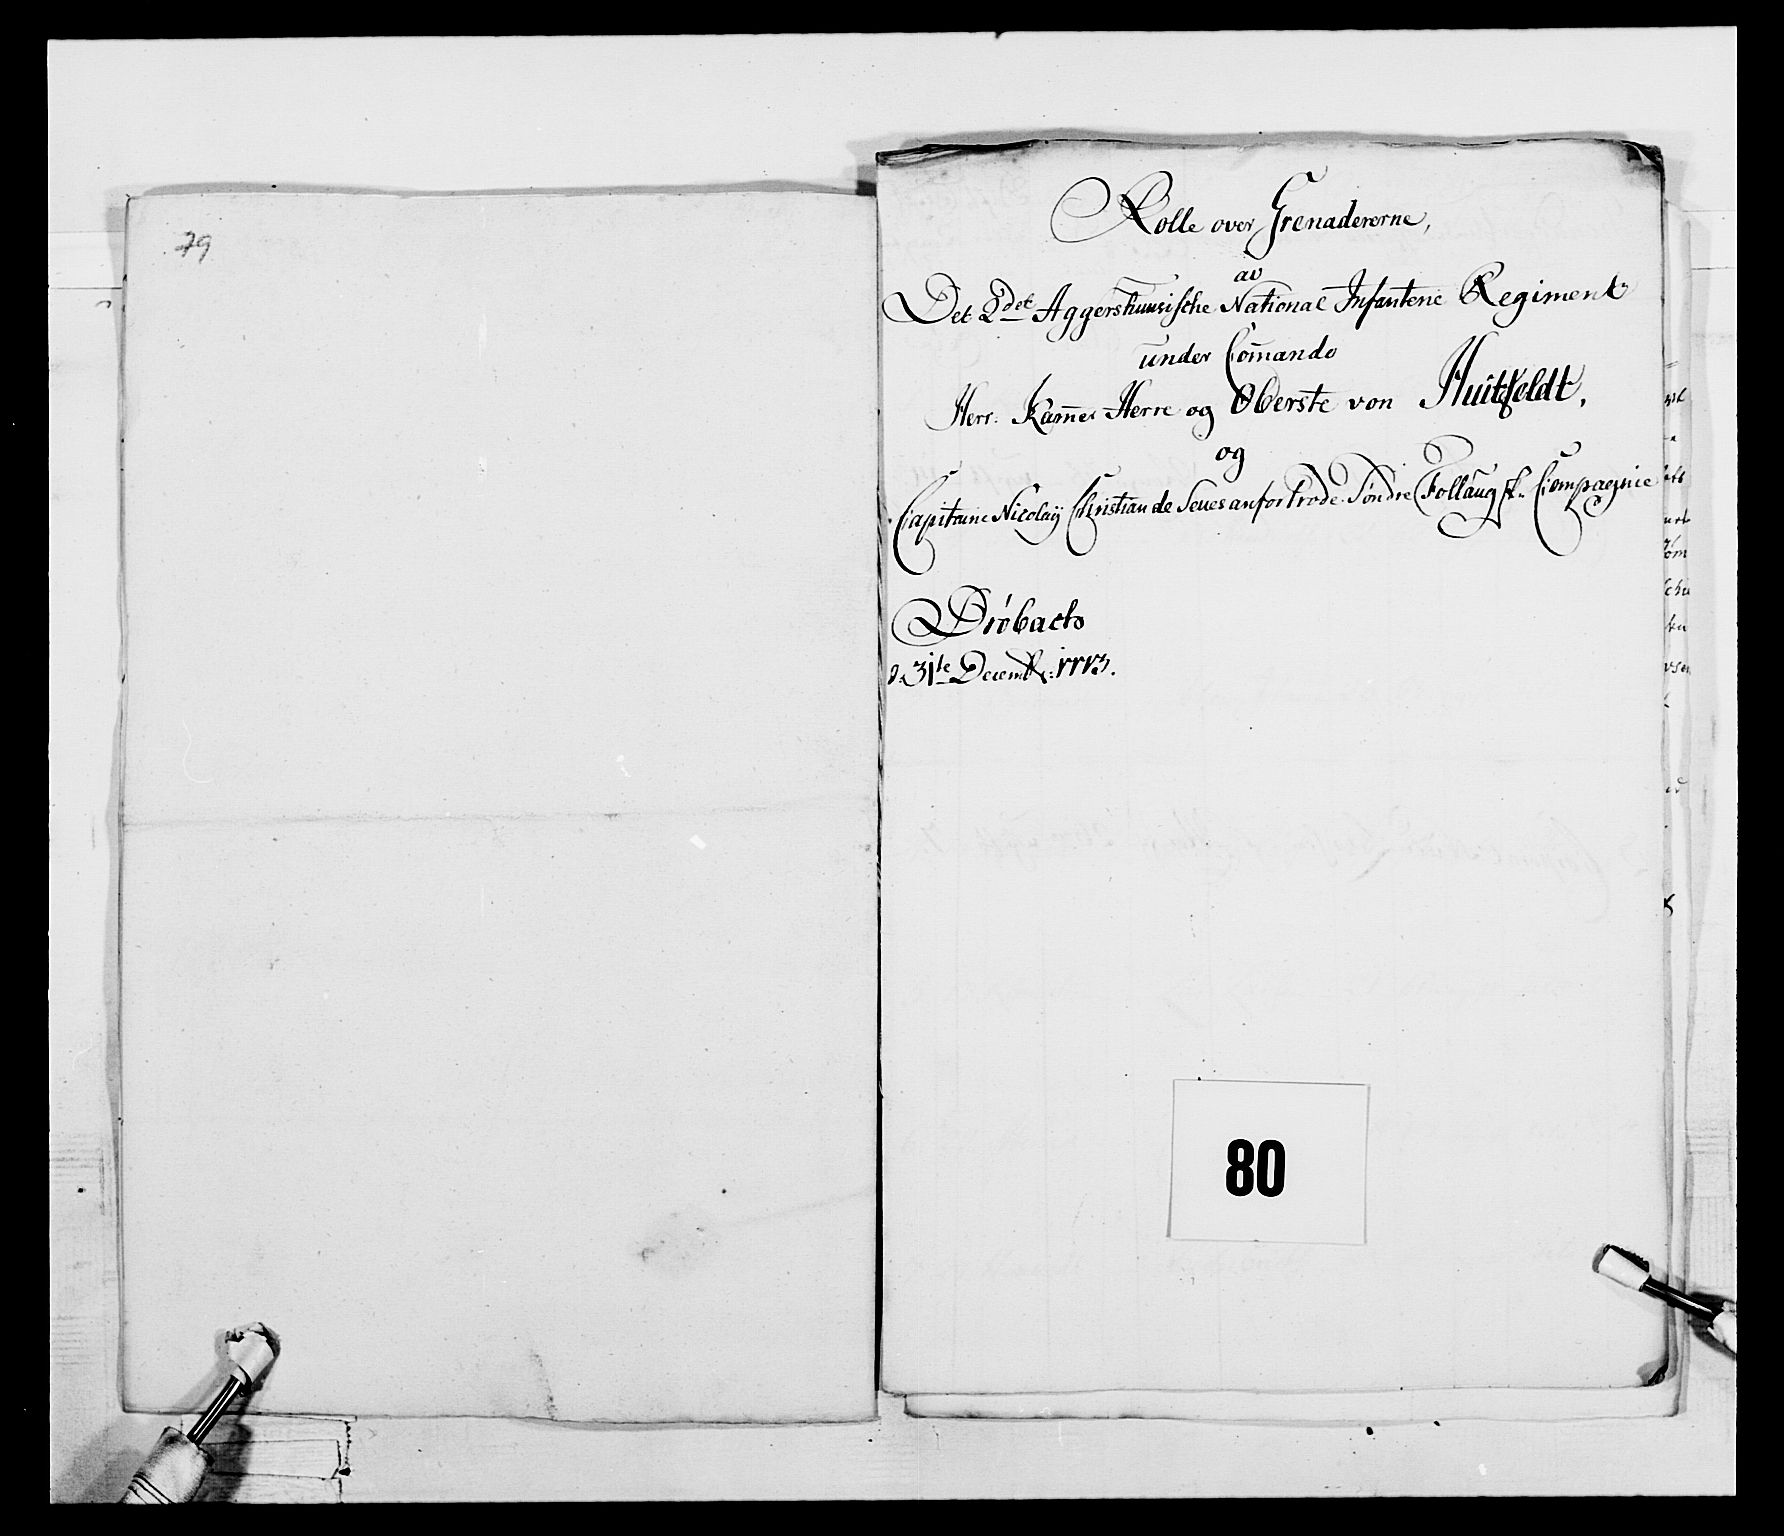 79
Rolle over Grenadererne,
av
Det 2det Aggershuusische National Infanterie Regiment
under Com̄ando
Herr Kam̄er Herre og Oberste von Huitfeldt,
og
Capitaine Nicolaÿ Christian de Seues anfortrode Søndre Follaugsk: Compagnie
Dröbach
d: 31te Decembr: 1773.
80